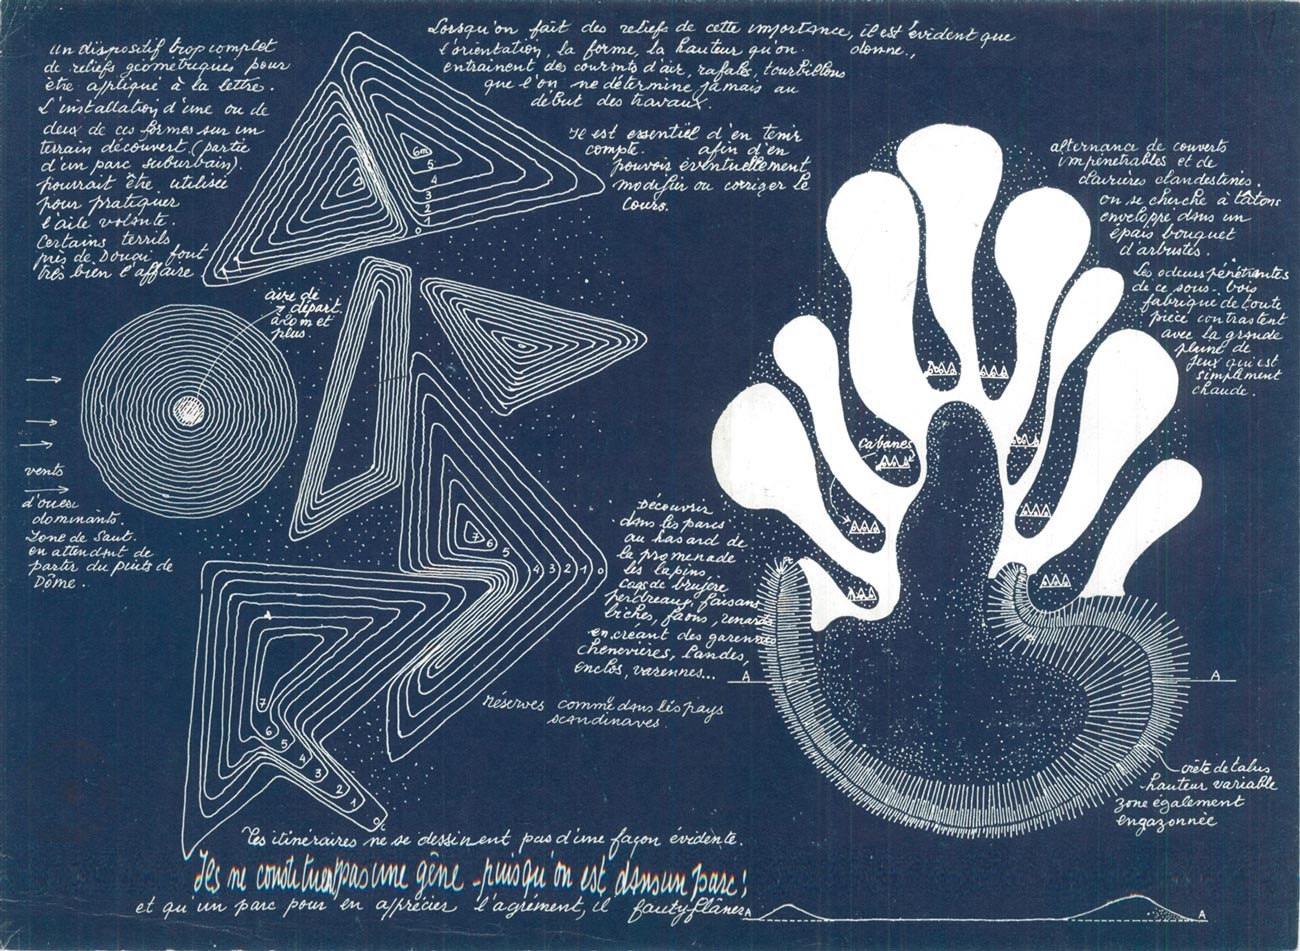 un dispositif trop complet
de reliefs géometriques pour
être appliqué à la lettre.
L'installation d'une ou de
deux de ces formes sur un
terrain découvert (partie
d'un parc suburbain).
pourrait être utilisée
pour pratiquer
l'aile volante.
Certains terrils
près de Douai font
très bien l'affaire
Lorsqu'on fait des reliefs de cette importance, il est évident que
l'orientation, la forme, la hauteur qu'on donne,
entrainent des courants d'air, rafales, tourbillons
que l'on ne détermine jamais au
début des travaux.
Il est essentiel d'en tenir
compte. afin d'en
pouvoir éventuellement
modifier ou corriger le
cours.
6m
5
4
3
2
1
0
aire de
départ.
à 20 m et
plus.
vents
d'ouest
dominants.
Zone de Saut.
en attendant de
partir du puits de
Dôme.
7
6
5
4
3
2
1
0
7
6
5
4
3
2
1
0
alternance de couverts
impénétrables et de
clairières clandestines.
on se cherche à tâtons
enveloppé dans un
épais bouquet
d'arbustes.
Les odeurs pénétrantes
de ce sous-bois
fabriqué de toute
pièce contrastent
avec la grande
plaine de
jeux qui est
simplement
chaude.
Cabanes
Découvrir
dans les parcs
au hasard de
la promenade
les lapins
coqs de bruyère
perdreaux, faisans
biches, faons, renards
en créant des garennes
chenevières, landes,
enclos, varennes...
Réserves comme dans les pays
scandinaves.
A
A
crête de talus
hauteur variable
zone également
engazonnée
Les itinéraires ne se dessinent pas d'une façon évidente.
Ils ne constituent pas une gêne - puisqu'on est dans un parc!
et qu'un parc pour en apprécier l'agrément, il faut y flâner
A
A